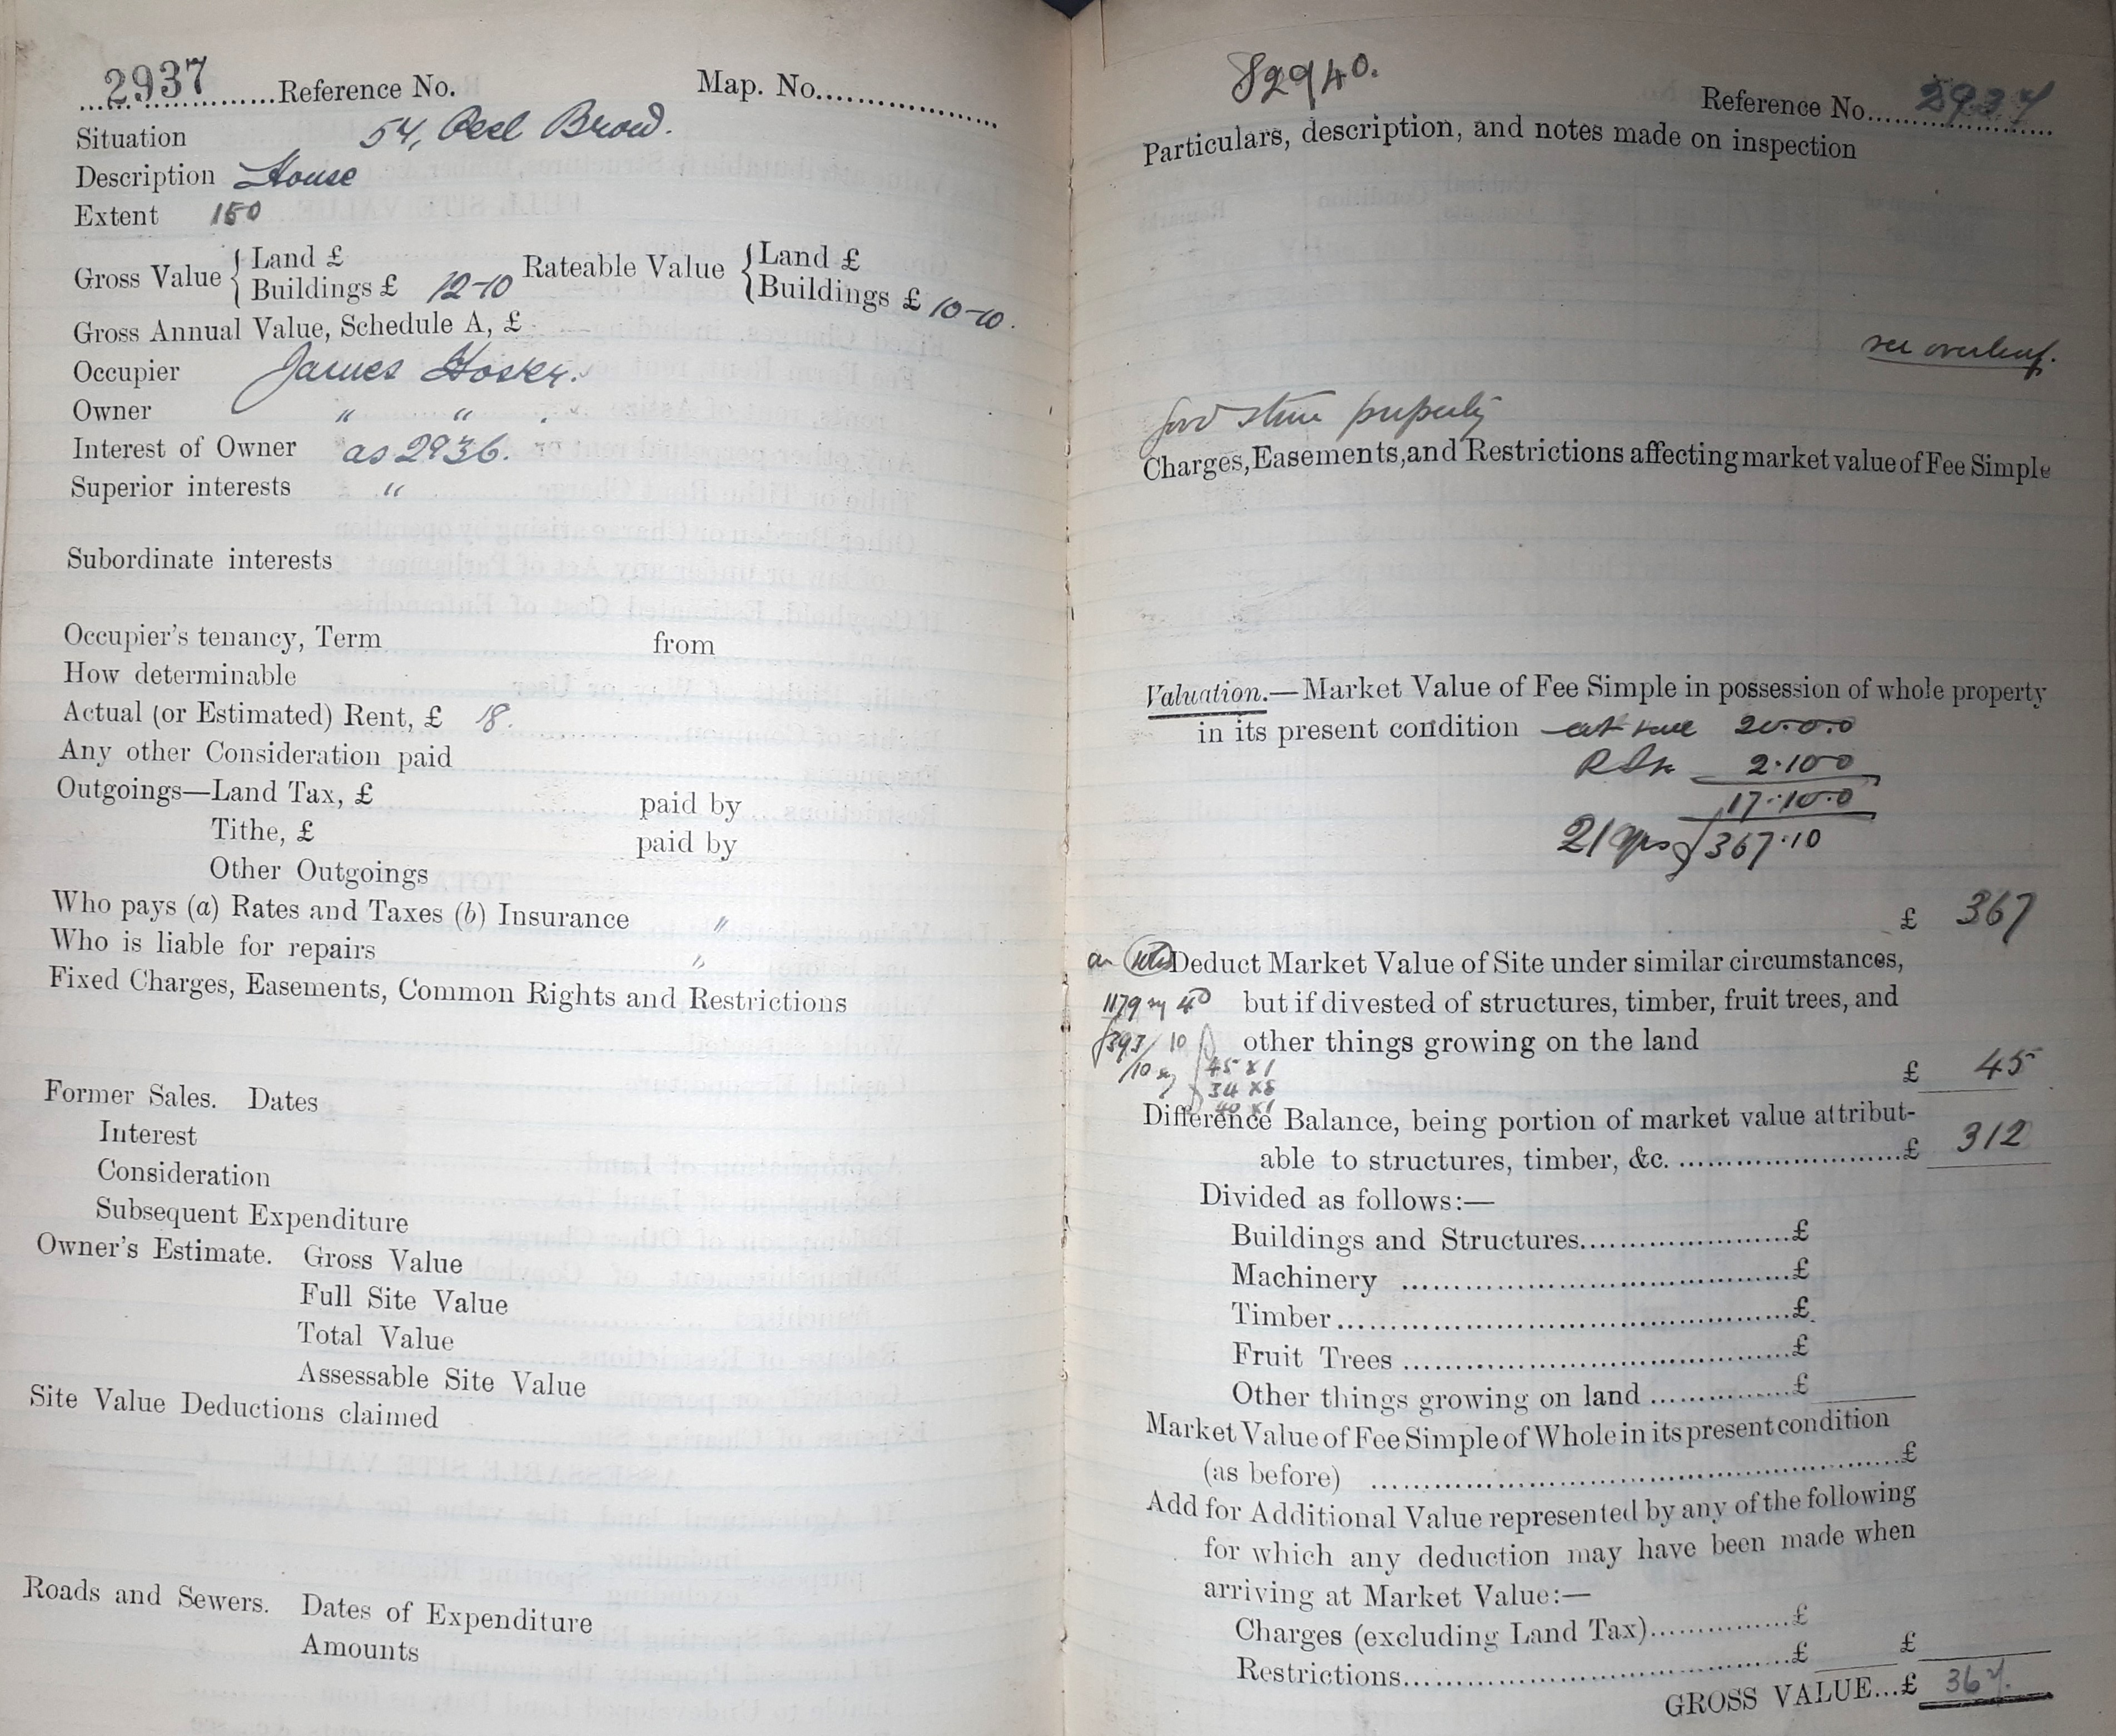 2937 Reference No. Map. No.
Situation 54, Peel Brow.
Description House
Extent 150
Gross Value { Land £
Buildings £ 12-10
Rateable Value { Land £
Buildings £ 10-10.
Gross Annual Value, Schedule A, £
Occupier James Hosker.
Owner " " .
Interest of Owner as 2936.
Superior interests "
Subordinate interests
Occupier's tenancy, Term from
How determinable
Actual (or Estimated) Rent, £ 18.
Any other Consideration paid
Outgoings—Land Tax, £ paid by
Tithe, £ paid by
Other Outgoings
Who pays (a) Rates and Taxes (b) Insurance "
Who is liable for repairs "
Fixed Charges, Easements, Common Rights and Restrictions
Former Sales. Dates
Interest
Consideration
Subsequent Expenditure
Owner's Estimate. Gross Value
Full Site Value
Total Value
Assessable Site Value
Site Value Deductions claimed
Roads and Sewers. Dates of Expenditure
Amounts
82940.
Reference No. 2937
Particulars, description, and notes made on inspection
see overleaf.
good stone property
Charges, Easements, and Restrictions affecting market value of Fee Simple
Valuation.—Market Value of Fee Simple in possession of whole property
in its present condition 20.0.0
2.10 0
17.10.0
21 yrs 367.10
£ 367
Deduct Market Value of Site under similar circumstances,
1179 but if divested of structures, timber, fruit trees, and
393/10 other things growing on the land
45 x 1
34 x 8
40 x 1
£ 45
Difference Balance, being portion of market value attribut-
able to structures, timber, &c. £ 312
Divided as follows:—
Buildings and Structures £
Machinery £
Timber £
Fruit Trees £
Other things growing on land £
Market Value of Fee Simple of Whole in its present condition
(as before) £
Add for Additional Value represented by any of the following
for which any deduction may have been made when
arriving at Market Value:—
Charges (excluding Land Tax) £
Restrictions £ £
GROSS VALUE...£ 367.